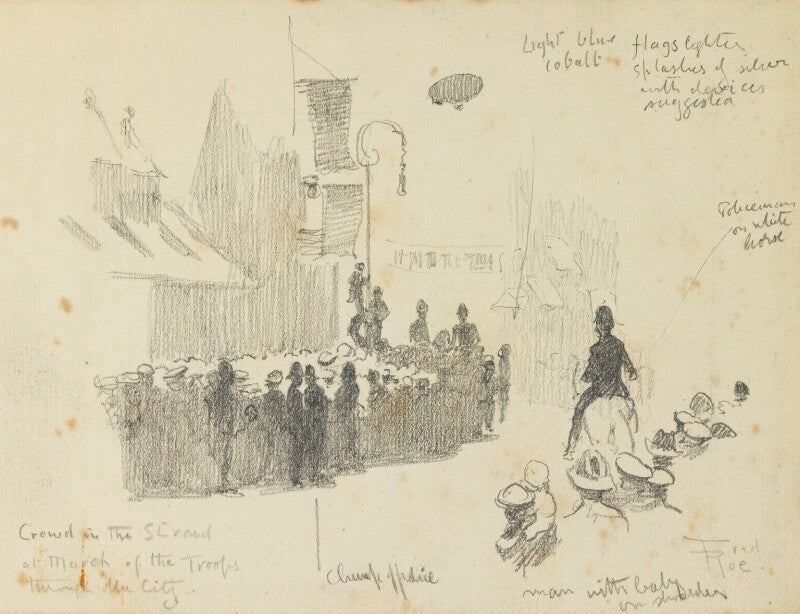 Light blue
cobalt
flags lighter
splashes of silver
with devices
suggested
Policeman
on white
horse
Crowd in the Strand
at March of the Troops
through the City.
man with baby
on shoulder
Fred
Roe.